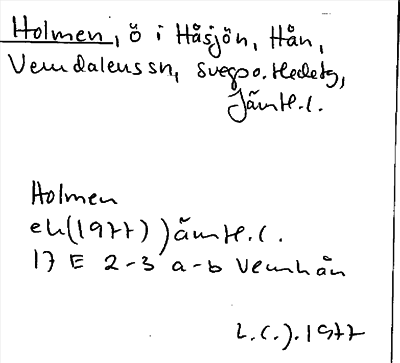 Holmen, ö i Håsjön, Hån,
Vemdalens sn, Svegs o. Hedetg,
Jämtl. l.
Holmen
ek (1977) Jämtl. l.
17 E 2-3 a-b Vemhån
L.C.J. 1977